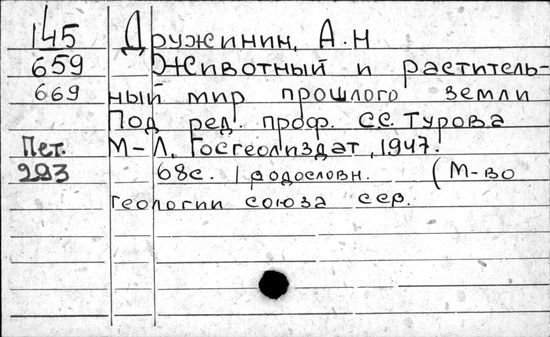 145 Дружинин, А.Н
659 Животный и раститель-
669 ный мир прошлого земли
Под ред. проф. С.С. Турова
Пет. М-Л, Госгеолиздат, 1947.
223 68с. 1 родословн. (М-во
геологии союза сср.